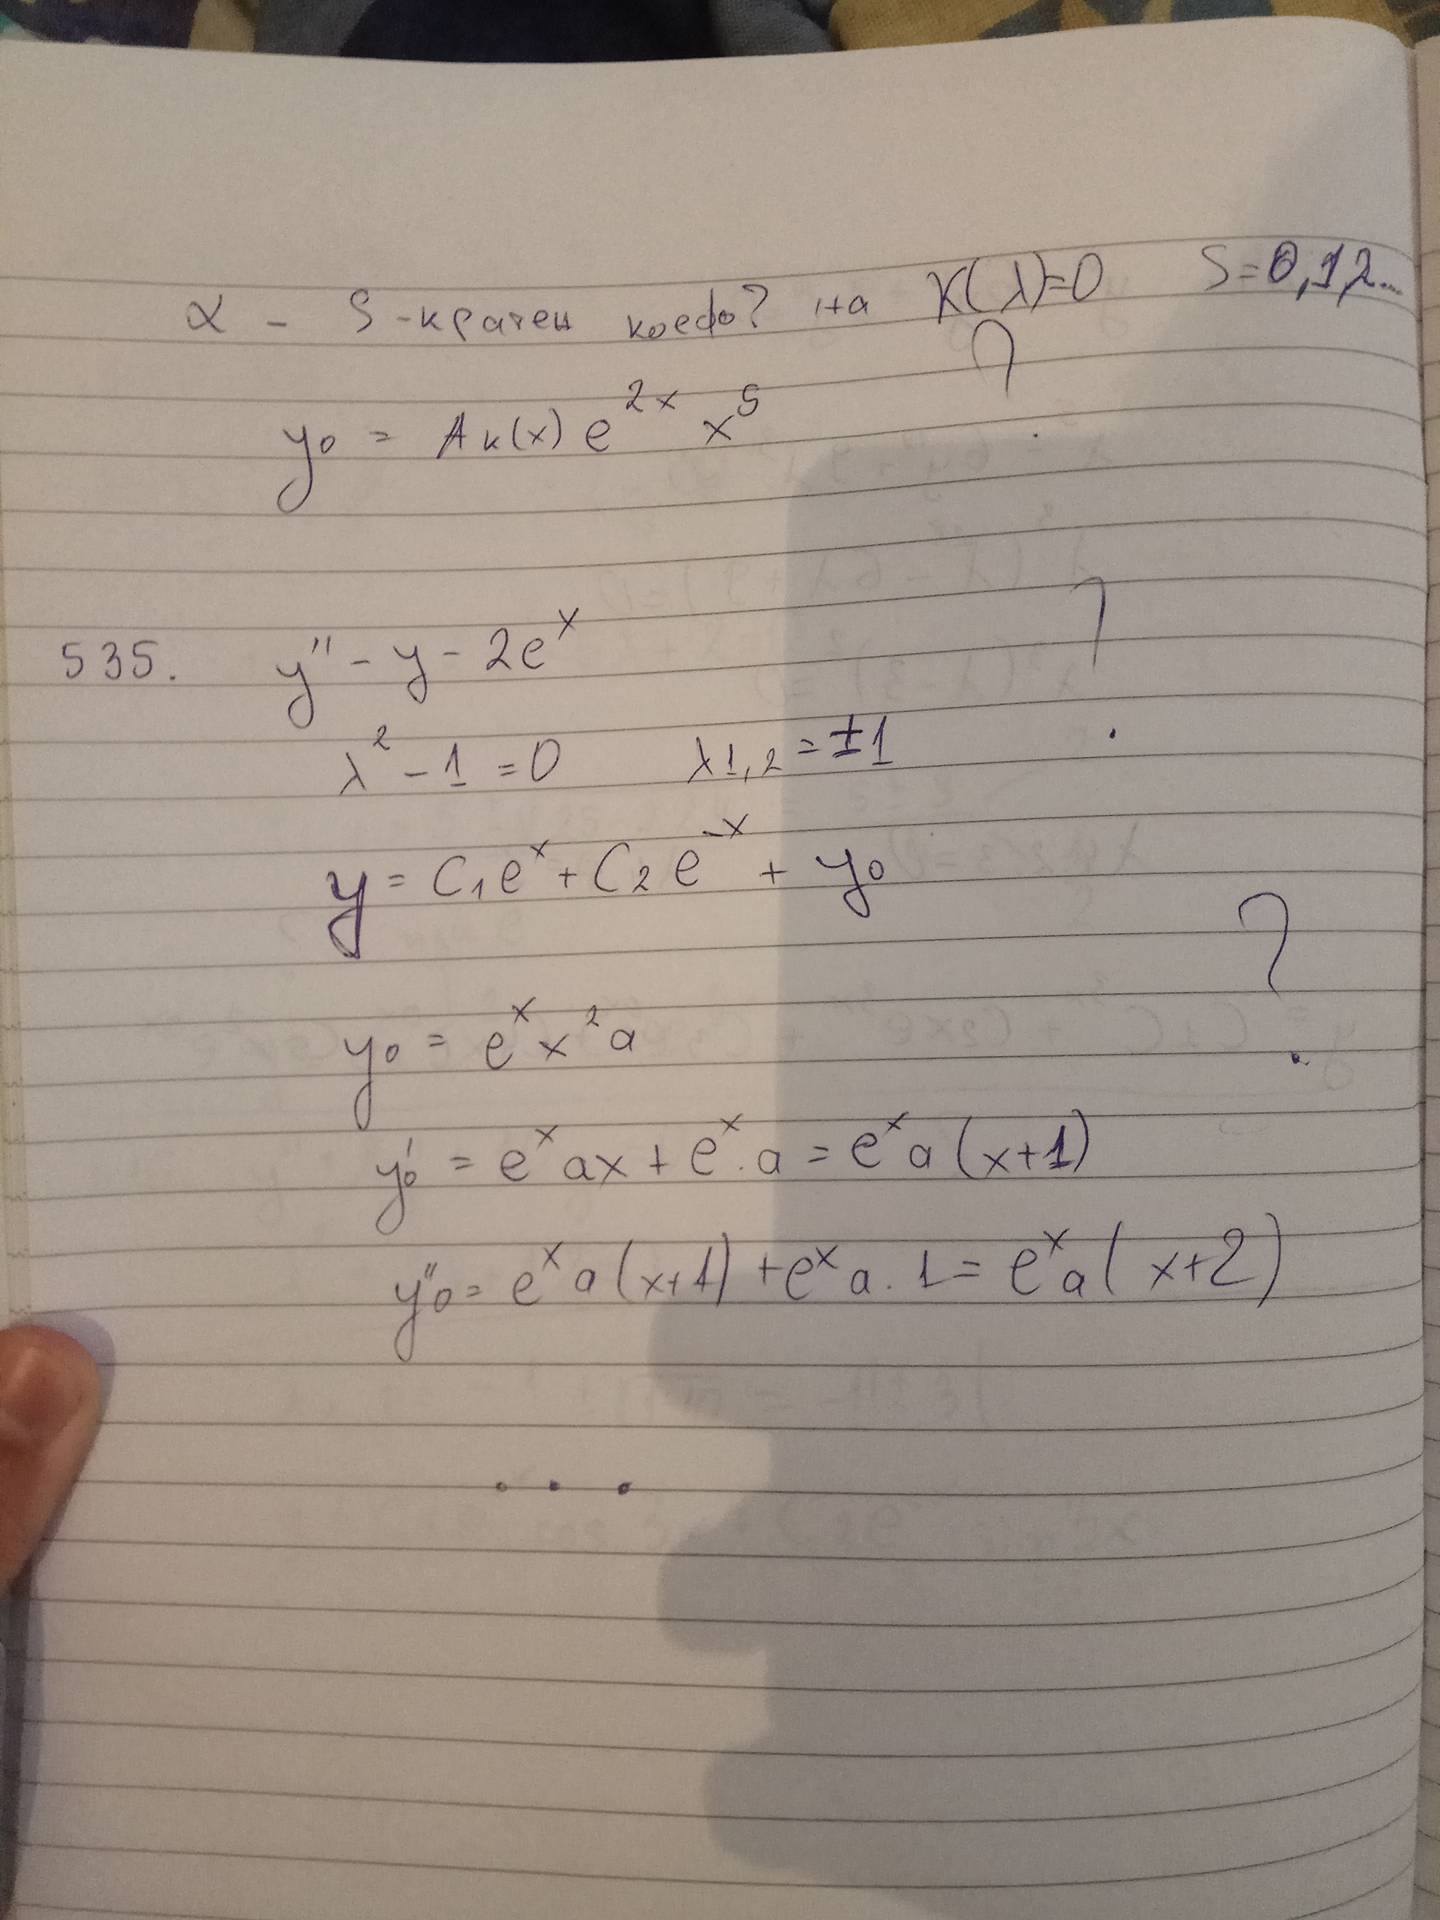 α - S-кратен коеф? на K(λ)=0 S=0,1,2...
?
y₀ = Aκ(x) e^2x x^S
535. y'' - y - 2e^x ?
λ² - 1 = 0 λ1,2 = ±1
y = C₁e^x + C₂e^-x + y₀
?
y₀ = e^x x² a
y₀' = e^x ax + e^x . a = e^x a (x+1)
y''₀ = e^x a (x+1) + e^x a . 1 = e^x a ( x+2)
. . .